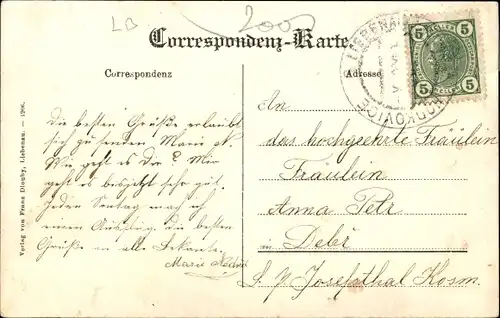 LB
2000
Correspondenz-Karte.
Correspondenz
Adresse
LIEBENAU
HODKOVICE
5 5
5 5
Die besten Grüße erlaubt
sich zu senden Marie N.
Wie geht es Dir? Mir
geht es sehr gut.
Jeden Sontag mach ich
einen Ausflug die besten
Grüße an alle Bekante
Marie
An
das hochgeehrte Fräulein
Fräulein
Anna Petr
in Debř
S. P. Josefsthal Kosm.
Verlag von Franz Dlouhy, Liebenau. — 1206.